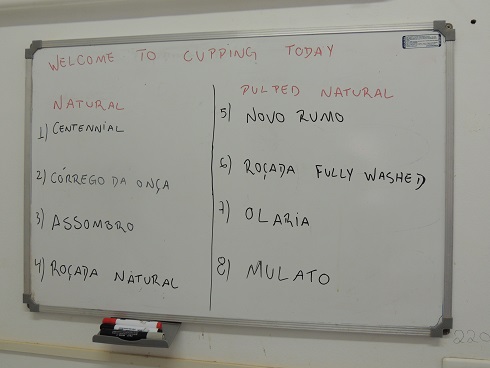 WELCOME TO CUPPING TODAY
NATURAL
1) CENTENNIAL
2) CÓRREGO DA ONÇA
3) ASSOMBRO
4) ROÇADA NATURAL
PULPED NATURAL
5) NOVO RUMO
6) ROÇADA FULLY WASHED
7) OLARIA
8) MULATO
220